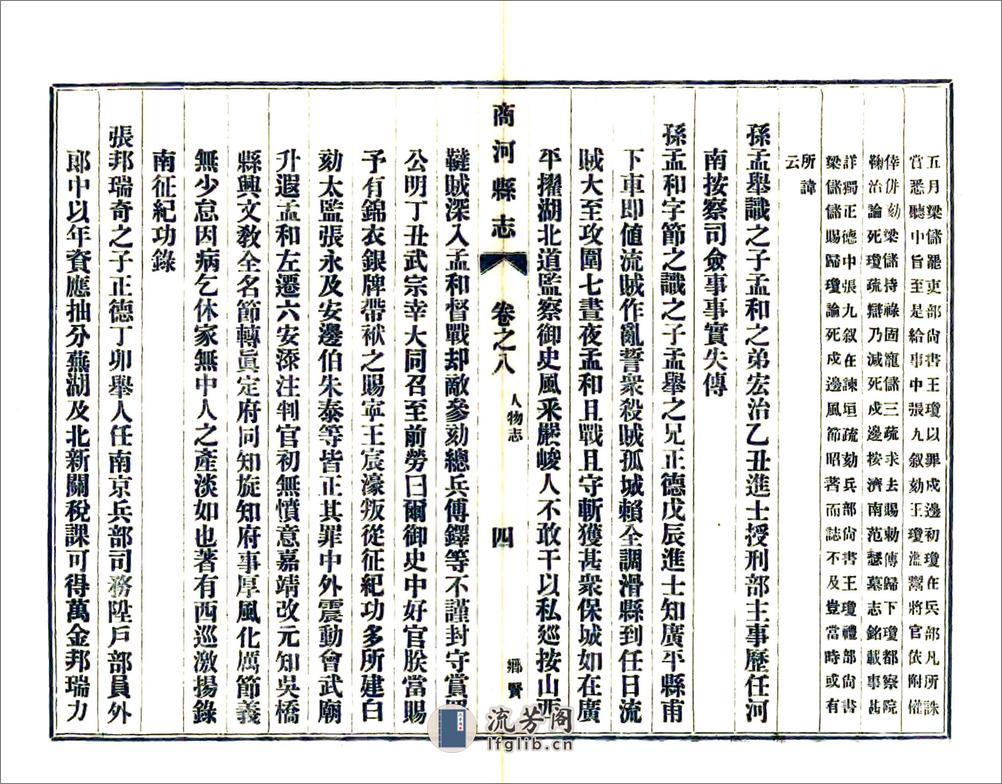 五月梁儲罷吏部尚書王瓊以罪戍邊初瓊在兵部凡所誅
賞悉聽中旨至是給事中張九叙劾王瓊濫鬻將官依附權
倖併劾梁儲持祿固寵儲三疏求去賜勅傳歸下瓊都察院
鞫治論死瓊疏辯乃減死戍邊按濟南范瑟墓志銘載事甚
詳獨正德中張九叙在諫垣疏劾兵部尚書王瓊禮部尚書
梁儲儲賜歸瓊論死戍邊風節昭著而誌不及豈當時或有
所諱
云
孫孟舉識之子孟和之弟宏治乙丑進士授刑部主事歷任河
南按察司僉事事實失傳
孫孟和字節之識之子孟舉之兄正德戊辰進士知廣平縣甫
下車即値流賊作亂誓衆殺賊孤城賴全調滑縣到任日流
賊大至攻圍七晝夜孟和且戰且守斬獲甚衆保城如在廣
平擢湖北道監察御史風采嚴峻人不敢干以私廵按山西
商河縣志
卷之八
人物志
四
鄉賢
韃賊深入孟和督戰却敵參劾總兵傅鐸等不謹封守賞罰
公明丁丑武宗幸大同召至前勞曰爾御史中好官朕當賜
予有錦衣銀牌帶袱之賜寧王宸濠叛從征紀功多所建白
劾太監張永及安邊伯朱泰等皆正其罪中外震動會武廟
升遐孟和左遷六安添注判官初無憤意嘉靖改元知吳橋
縣興文敎全名節轉眞定府同知旋知府事厚風化厲節義
無少怠因病乞休家無中人之產淡如也著有西巡激揚錄
南征紀功錄
張邦瑞奇之子正德丁卯舉人任南京兵部司務陞戶部員外
郎中以年資應抽分蕪湖及北新關稅課可得萬金邦瑞力
流芳閣
lfglib.cn